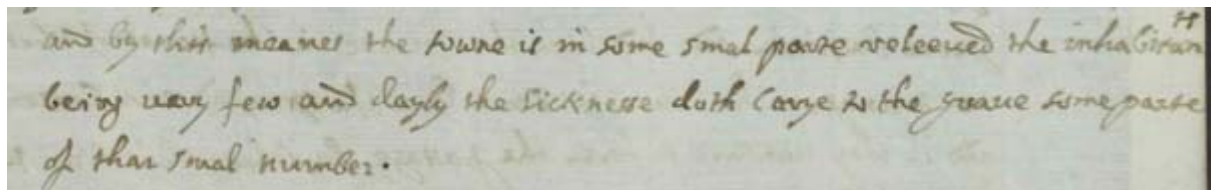 and by this meanes the towne is in some smal parte releeued the inhabitan
ts
being uery few and dayly the Sicknesse doth Carye to the graue some parte
of that smal number.